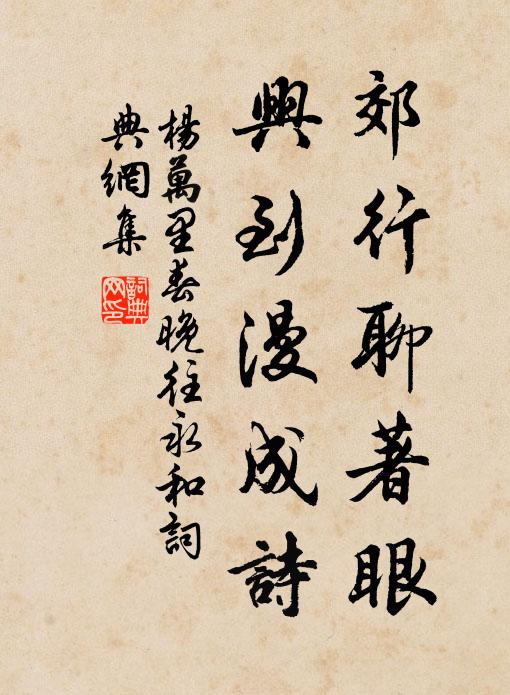 郊行聊著眼
興到漫成詩
楊萬里春晚往永和詞
典網集
詞典网印